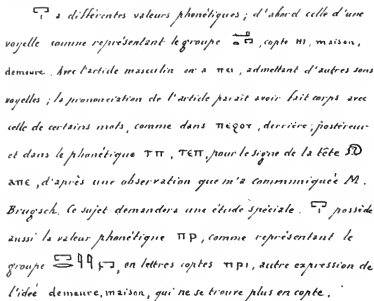 a différentes valeurs phonétiques ; d'abord celle d'une
voyelle comme représentant le groupe , copte ⲏⲓ, maison,
demeure. Avec l'article masculin on a ⲡⲉⲓ, admettant d'autres sons
voyelles ; la prononciation de l'article parait avoir fait corps avec
celle de certains mots, comme dans ⲡⲉϩⲟⲩ, derrière ; postérieur
et dans le phonétique ⲧⲡ, ⲧⲉⲡ, pour le signe de la tête
ⲁⲡⲉ, d'après une observation que m'a communiquée M.
Brugsch. Ce sujet demandera une étude spéciale. possède
aussi la valeur phonétique ⲡⲣ, comme représentant le
groupe , en lettres coptes ⲡⲣⲓ, autre expression de
l'idée demeure, maison, qui ne se trouve plus en copte.